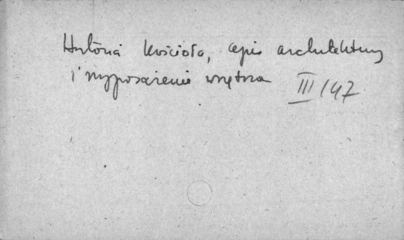 Historia kościoła, opis architektury
i wyposażenie wnętrza III/47